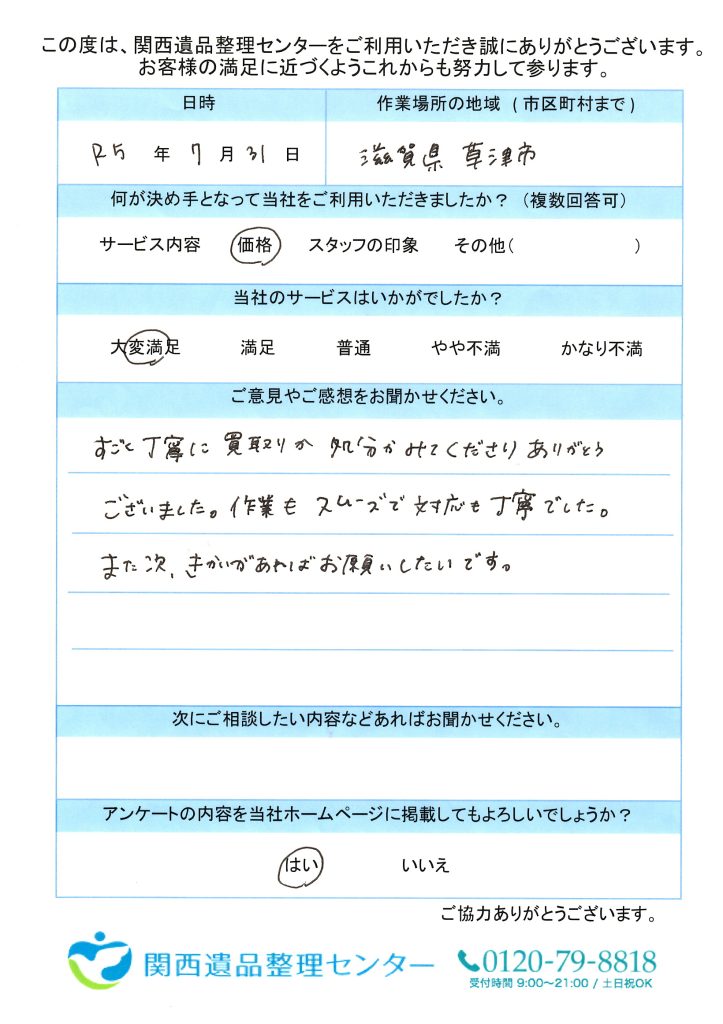 この度は、関西遺品整理センターをご利用いただき誠にありがとうございます。
お客様の満足に近づくようこれからも努力して参ります。
日時
作業場所の地域 (市区町村まで)
R5 年 7 月 31 日
滋賀県 草津市
何が決め手となって当社をご利用いただきましたか?(複数回答可)
サービス内容 価格 スタッフの印象 その他( )
当社のサービスはいかがでしたか?
大変満足 満足 普通 やや不満 かなり不満
ご意見やご感想をお聞かせください。
すごく丁寧に 買取りか 処分か みてくださり ありがとう
ございました。作業も スムーズで 対応も 丁寧でした。
また次、きかいがあればお願いしたいです。
次にご相談したい内容などあればお聞かせください。
アンケートの内容を当社ホームページに掲載してもよろしいでしょうか?
はい いいえ
ご協力ありがとうございます。
関西遺品整理センター
0120-79-8818
受付時間 9:00~21:00 / 土日祝OK